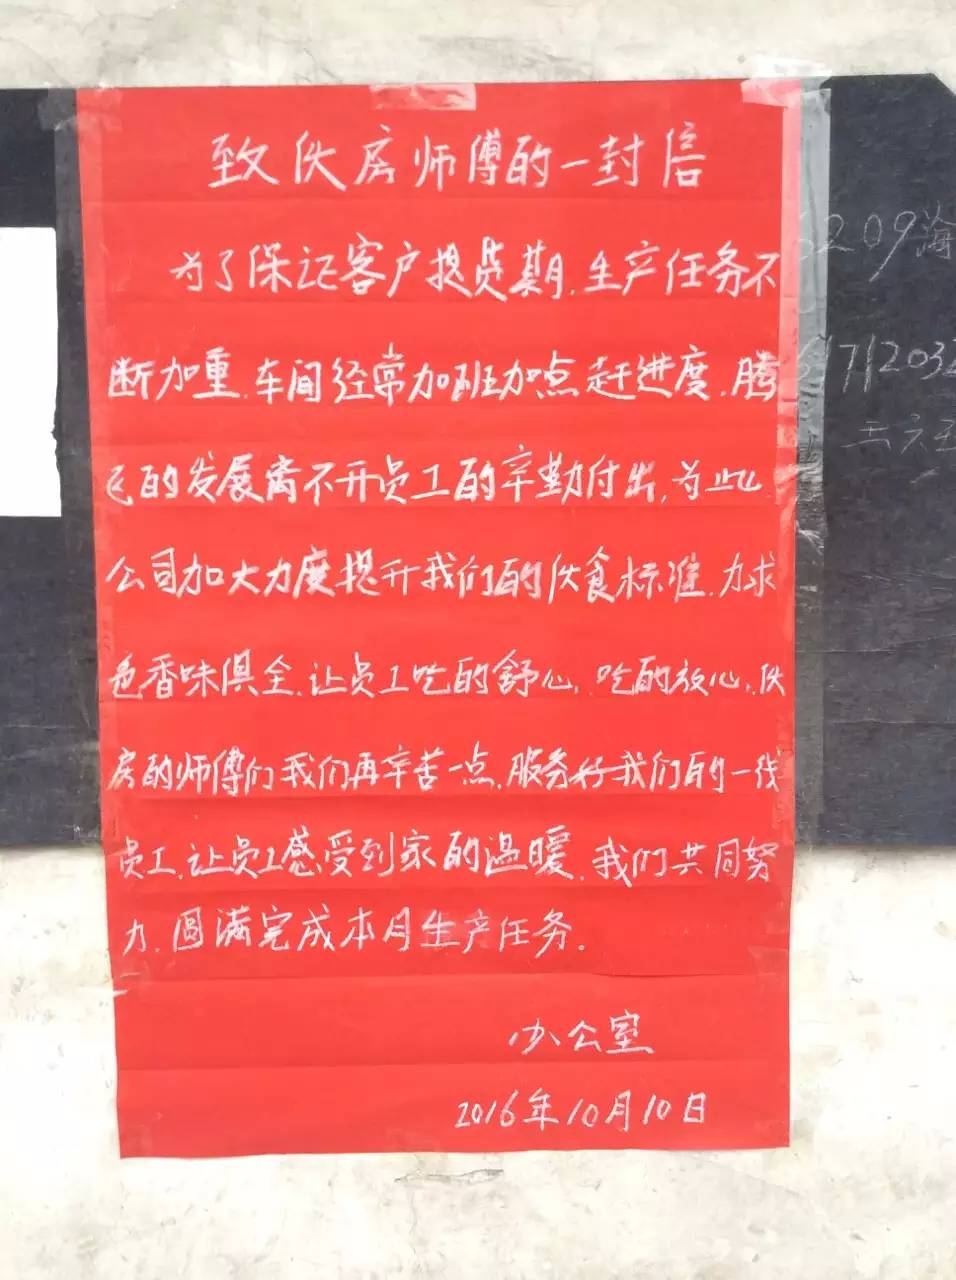 致伙房师傅的一封信
为了保证客户提货期.生产任务不
断加重.车间经常加班加点赶进度.腾
飞的发展离不开员工的辛勤付出.为此
公司加大力度提升我们的伙食标准.力求
色香味俱全.让员工吃的舒心,吃的放心.伙
房的师傅们我们再辛苦一点.服务好我们的一线
员工.让员工感受到家的温暖.我们共同努
力.圆满完成本月生产任务.
办公室
2016年10月10日
209海
7112032